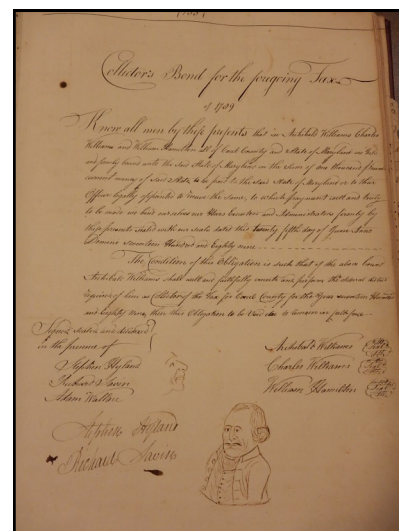 Collector's Bond for the forgoing Tax
of 1789
Know all men by these presents that we Archibald Williams Charles
Williams and William Hamilton all of Cecil County and State of Maryland are held
and firmly bound unto the said State of Maryland in the Sum of one thousand pounds
current money of said State, to be paid to the said State of Maryland or to their
Officer legally appointed to receive the same, to which payment well and truly
to be made we bind ourselves our Heirs Executors and Administrators firmly by
these presents sealed with our seals dated this twenty fifth day of
Domini Seventeen Hundred and Eighty nine
The Condition of this Obligation is such that if the above bound
Archibald Williams shall well and faithfully execute and perform the several duties
required of him as Collector of the Tax for Cecil County for the year seventeen Hundred
and Eighty Nine, then this Obligation to be Void else to remain in full force
Signed Sealed and delivered
in the presence of
Stephen Hyland
Richard Savin
Adam Wallace
Archibald Williams
Charles Williams
William Hamilton
Stephen Hyland
Richard Savin